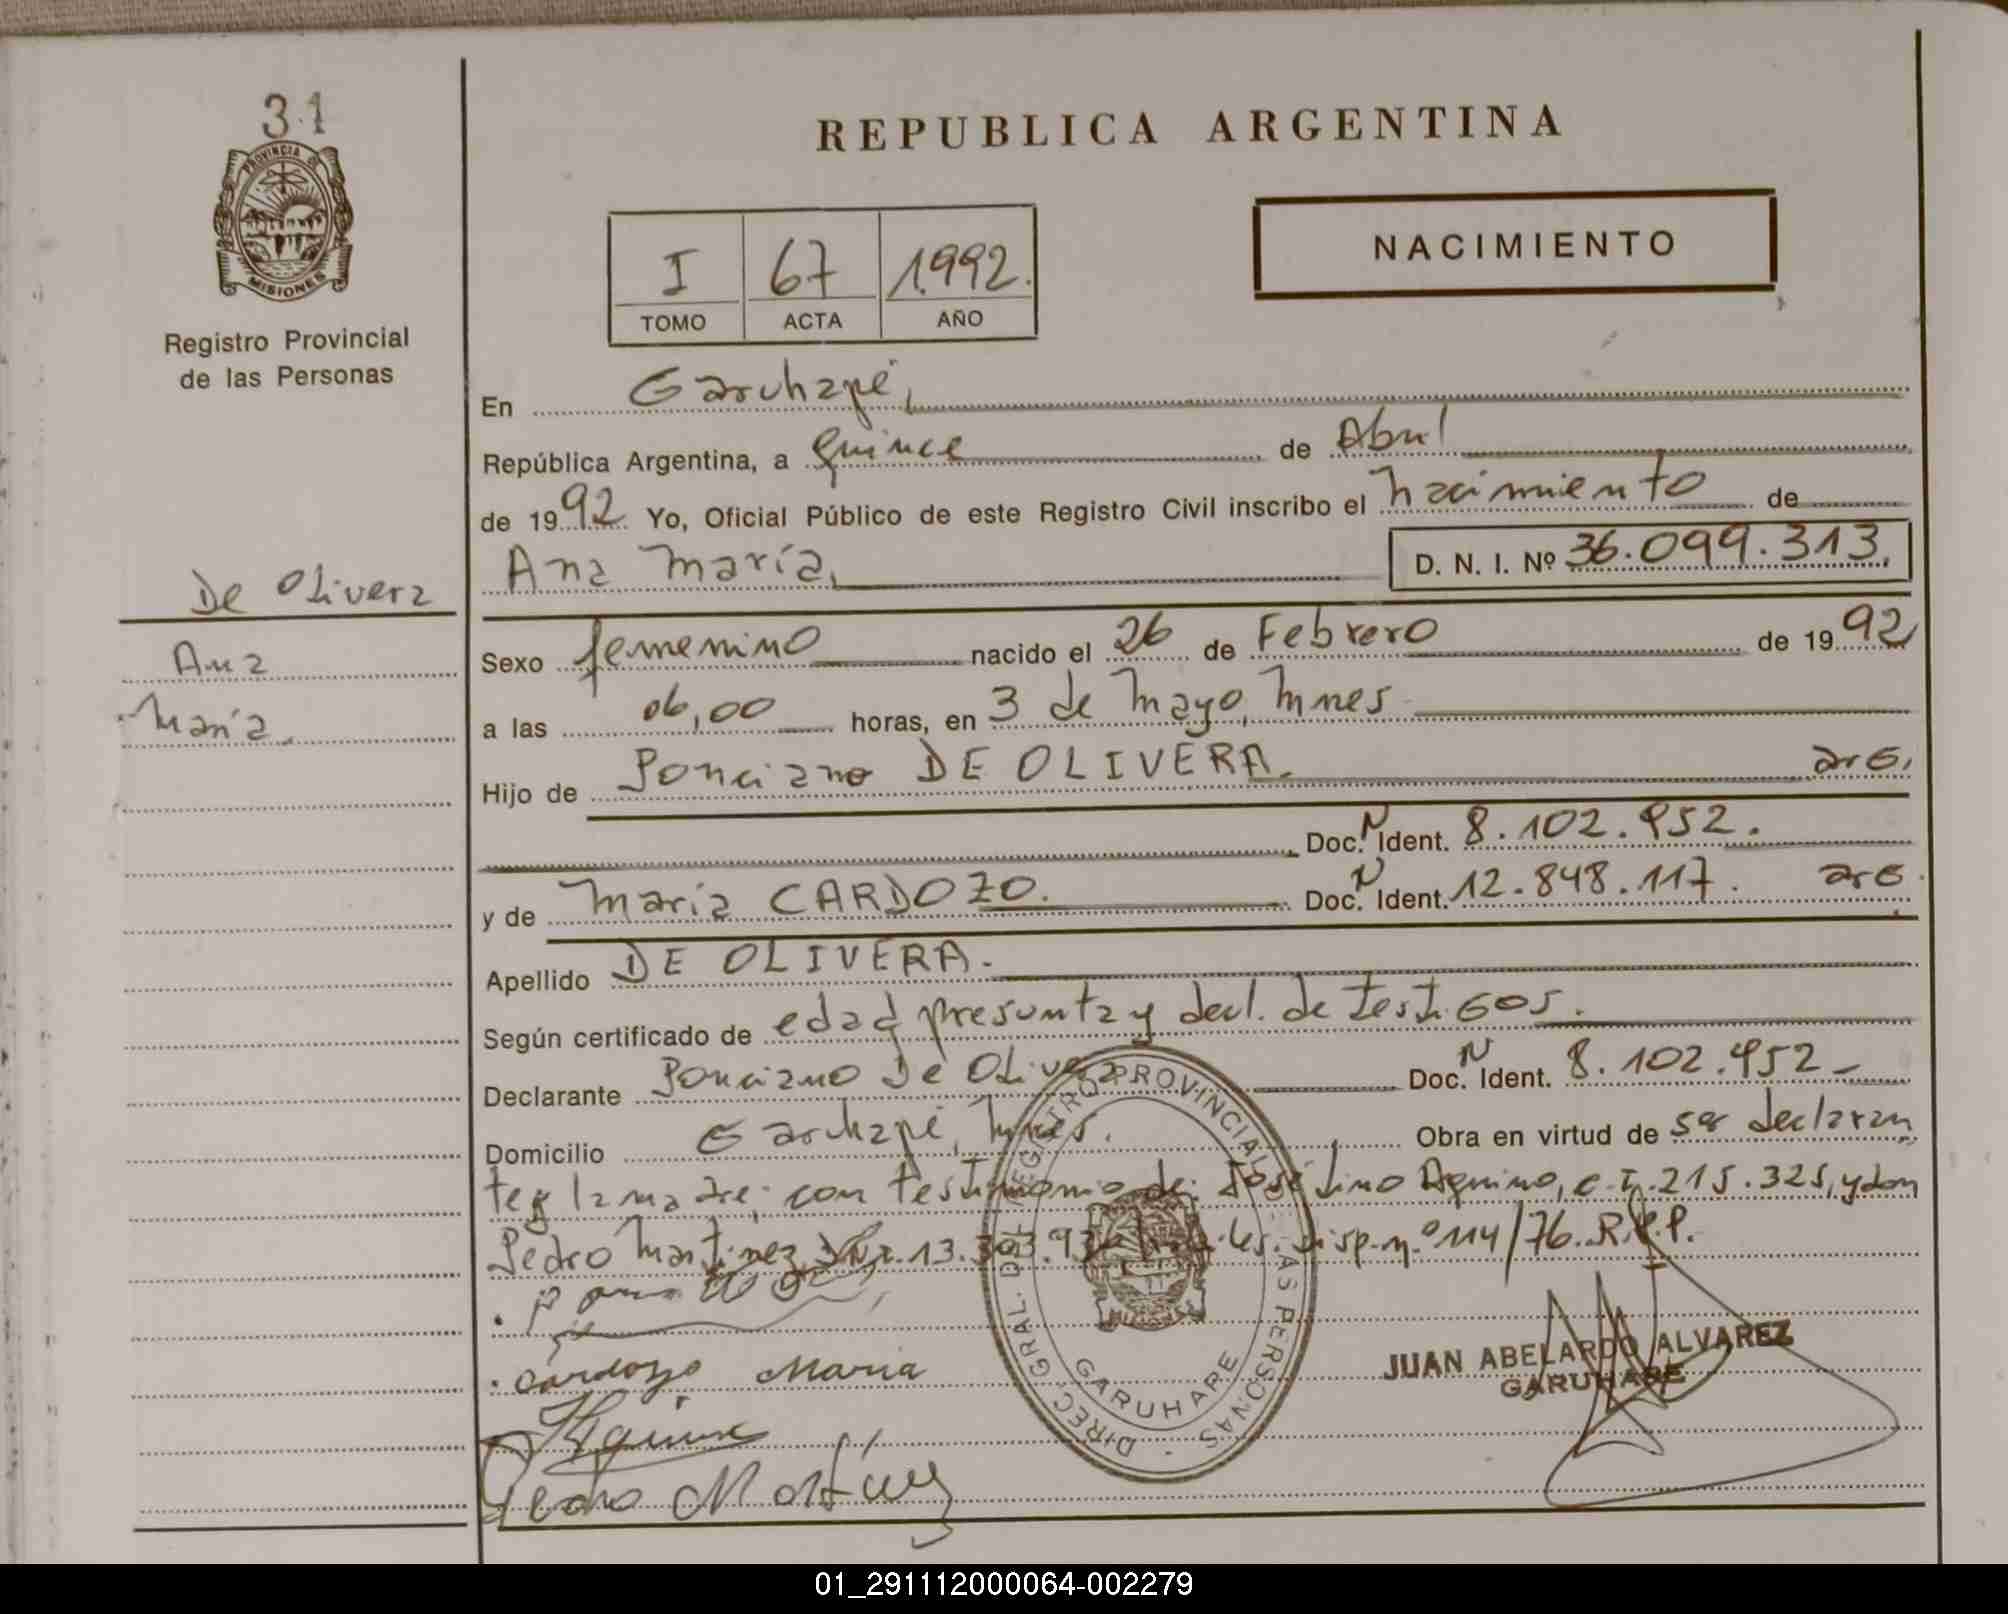 31
PROVINCIA DE
MISIONES
Registro Provincial
de las Personas
REPUBLICA ARGENTINA
I 67 1.992.
TOMO ACTA AÑO
NACIMIENTO
En Garuhapé,
República Argentina, a quince de Abril
de 1992. Yo, Oficial Público de este Registro Civil inscribo el nacimiento de
Ana María, D. N. I. Nº 36.099.313.
De Olivera
Ana
María.
Sexo femenino nacido el 26 de Febrero de 1992
a las 06,00 horas, en 3 de Mayo, Mnes
Hijo de Ponciano DE OLIVERA. arg.
Doc. N Ident. 8.102.952.
y de María CARDOZO. Doc. N Ident. 12.848.117. arg.
Apellido DE OLIVERA.
Según certificado de edad presunta y decl. de testigos.
Declarante Ponciano De Olivera Doc. N Ident. 8.102.952
Domicilio Garuhapé, Mnes. Obra en virtud de ser declaran
te y la madre; con testimonio de: José Lino Aquino, c.I. 215.325, y don
Pedro Martinez, 13. disp. n.º 114/76. R.P.P.
cardozo Maria
Aquino
Pedro Martinez
DIREC. GRAL. DEL REGISTRO PROVINCIAL DE LAS PERSONAS
GARUHAPE
JUAN ABELARDO ALVAREZ
GARUHAPE
01_291112000064-002279